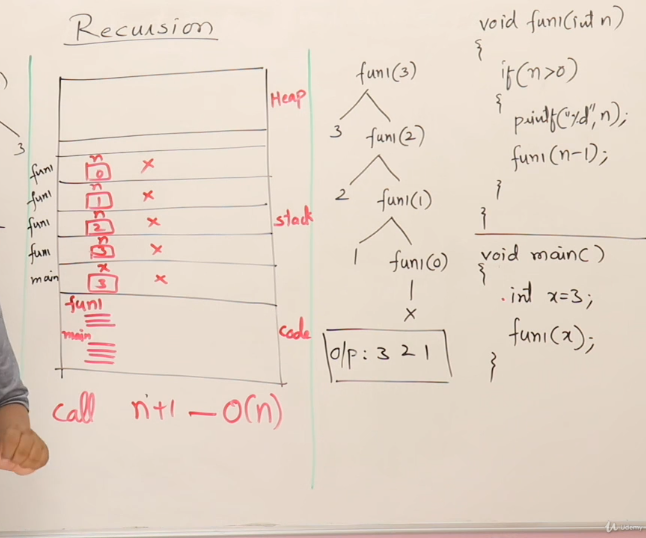 Recursion
)
3
Heap
stack
code
fun1 n 0 x
fun1 n 1 x
fun1 n 2 x
fun1 n 3 x
main x 3 x
fun1
main
call n+1 — O(n)
fun1(3)
3 fun1(2)
2 fun1(1)
1 fun1(0)
x
o/p : 3 2 1
void fun1(int n)
{
if(n>0)
{
printf("%d", n);
fun1(n-1);
}
}
void main()
{
int x=3;
fun1(x);
}
udemy